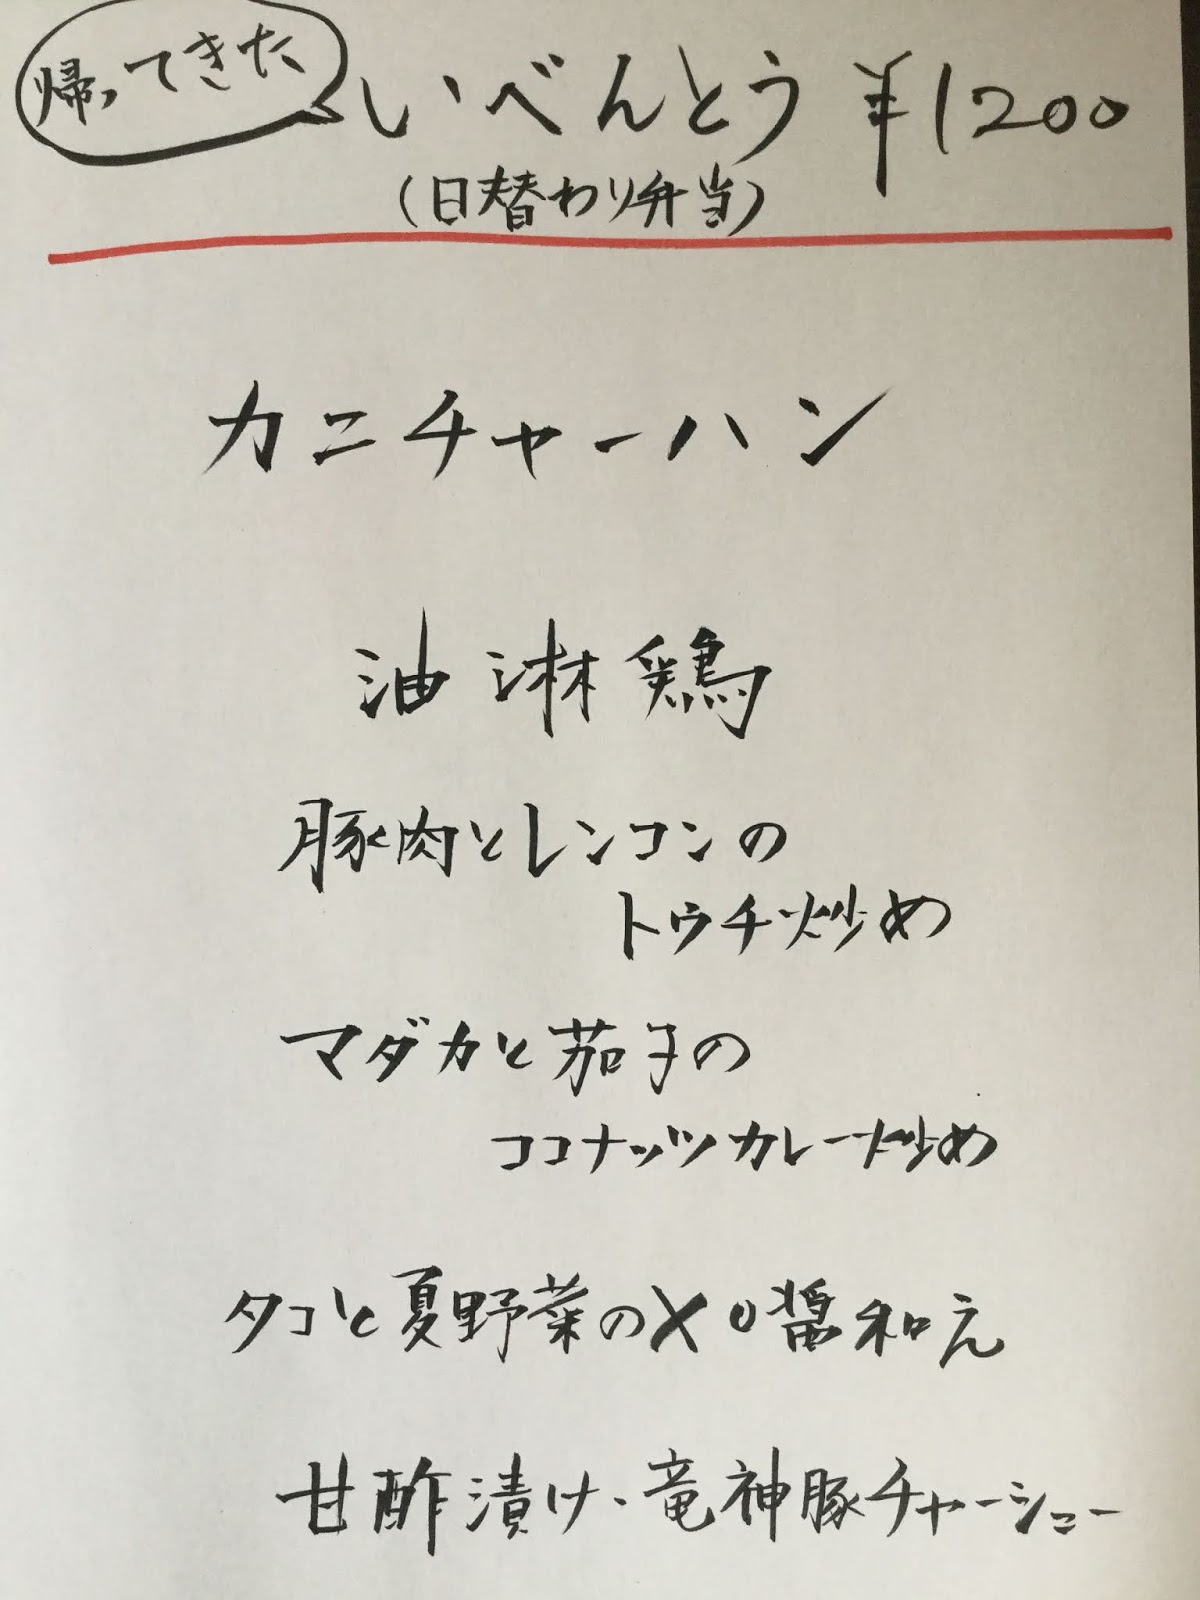 帰ってきた
いべんとう ¥1200
(日替わり弁当)
カニチャーハン
油淋鶏
豚肉とレンコンの
トウチ炒め
マダカと茄子の
ココナッツカレー炒め
タコと夏野菜のXO醤和え
甘酢漬け、竜神豚チャーシュー